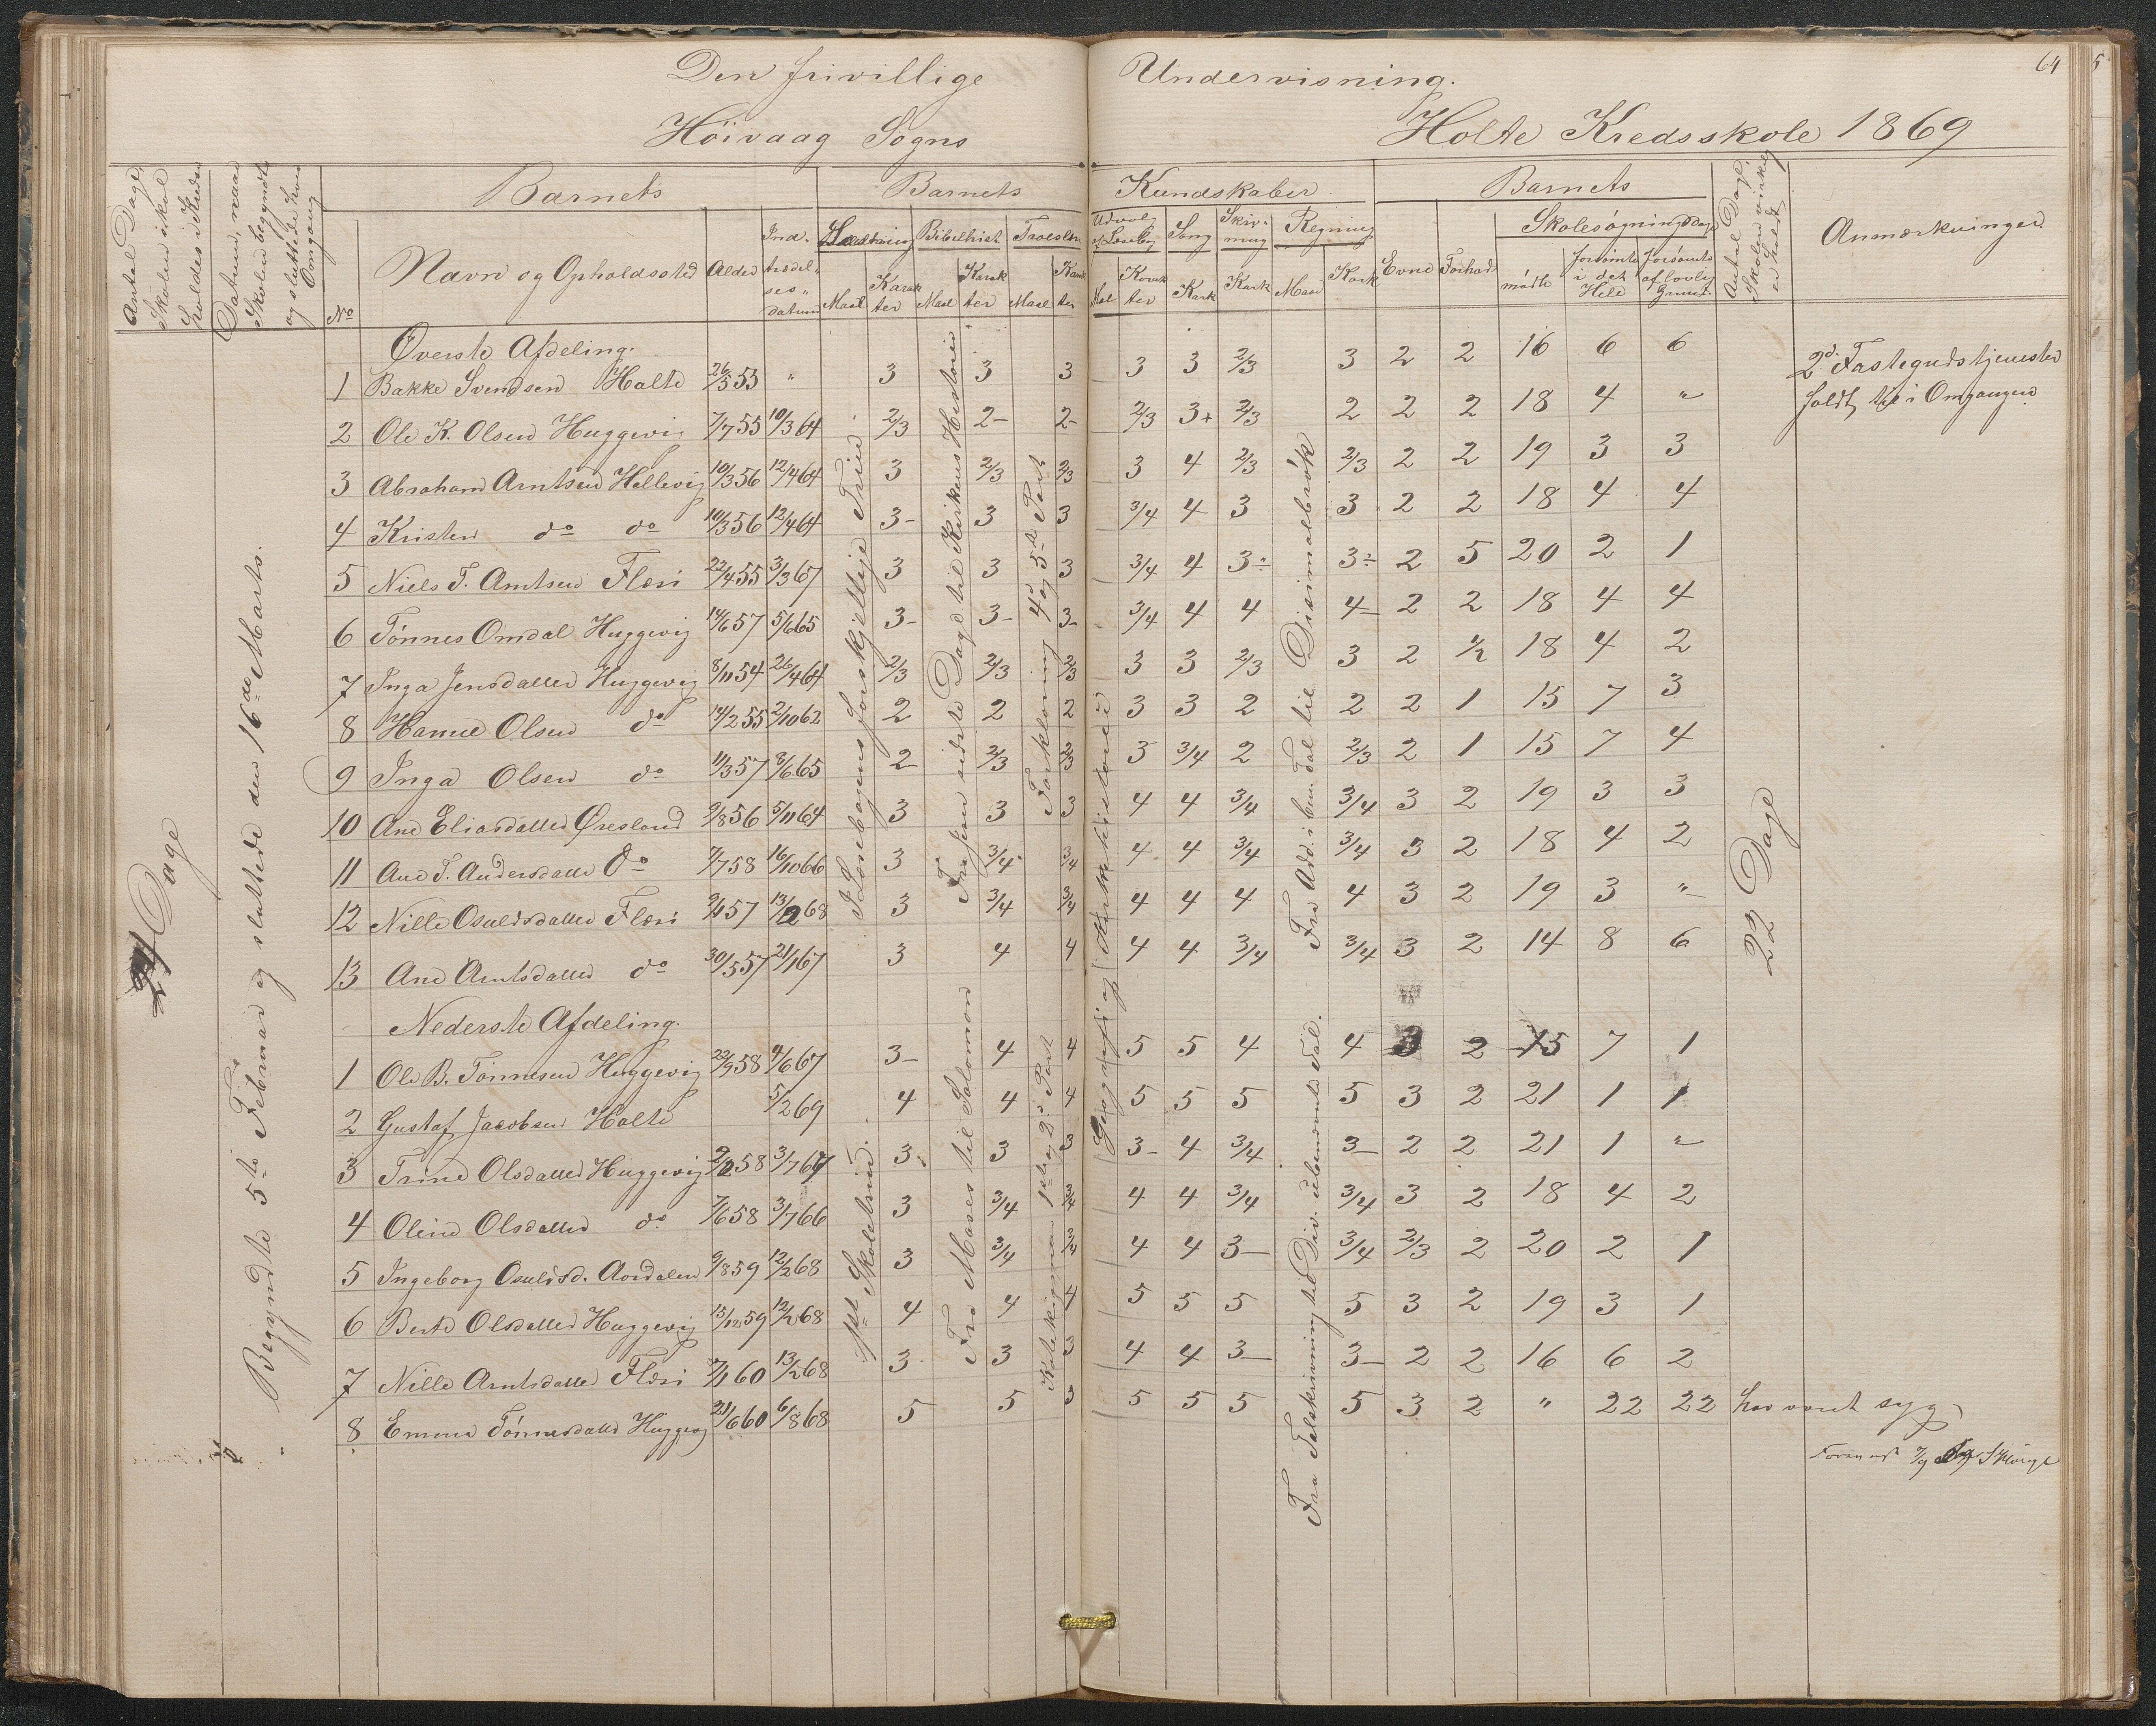 Den frivillige Undervisning. 64
Höivaag Sogns Holte Kredsskole 1869
Antal Dage Skolen skal holdes i Kredsen
Datum, naar Skolen begyndte og sluttede hver Omgang
No
Barnets
Navn og Opholdssted
Alder
Indtrædelsesdatum
Barnets Kundskaber
Læsning Maal Karakter
Bibelhist Maal Karakter
Troeslære Maal Karakter
Udvalg af Læsebog Maal Karakter
Sang Kark
Skrivning Kark
Regning Maal Kark
Barnets
Evne
Forhold
Skolesøgningsdage
mødte
forsømte i det Hele
forsømte af lovlig Grund
Antal Dage Skolen virkelig er holdt
Anmærkninger
24 Dage
Begyndte 5te Februar og sluttede den 16de Marts.
Øverste Afdeling.
1 Bakke Svendsen Holte 26/5 53 " 3 3 3 3 3 2/3 3 2 2 16 6 6
2 Ole K. Olsen Huggevig 7/7 55 10/3 64 2/3 2- 2- 2/3 3+ 2/3 2 2 2 18 4 "
3 Abraham Arntsen Hellevig 10/3 56 12/4 64 3 2/3 2/3 3 4 2/3 2/3 2 2 19 3 3
4 Kristen do do 10/3 56 12/4 64 3- 3 3 3/4 4 3 3 2 2 18 4 4
5 Niels T. Arntsen Flæsi 22/4 55 3/3 67 3 3 3 3/4 4 3÷ 3÷ 2 5 20 2 1
6 Tönnes Omdal Huggevig 14/6 57 5/6 65 3- 3- 3- 3/4 4 4 4- 2 2 18 4 4
7 Inga Jensdatter Huggevig 8/11 54 26/4 64 2/3 2/3 2/3 3 3 2/3 3 2 1/2 18 4 2
8 Hanne Olsen do 14/2 55 2/10 62 2 2 2 3 3 2 2 2 1 15 7 3
9 Inga Olsen do 11/3 57 8/6 65 2 2/3 2/3 3 3/4 2 2/3 2 1 15 7 4
10 Ane Eliasdatter Øresland 9/8 56 5/11 64 3 3 3 4 4 3/4 3/4 3 2 19 3 3
11 Ane T. Andersdatter do 7/7 58 16/10 66 3 3/4 3/4 4 4 3/4 3/4 3 2 18 4 2
12 Nille Osuldsdatter Flæsi 9/1 57 13/2 68 3 3/4 3/4 4 4 4 4 3 2 19 3 "
13 Ane Arntsdatter do 30/5 57 21/1 67 3 4 4 4 4 3/4 3/4 3 2 14 8 6
Nederste Afdeling.
1 Ole B. Tönnesen Huggevig 22/9 58 4/6 67 3- 4 4 5 5 4 4 3 2 15 7 1
2 Gustaf Jacobsen Holte 5/2 69 4 4 4 5 5 5 5 3 2 21 1 1
3 Trine Olsdatter Huggevig 2/2 58 3/7 67 3 3 3 3- 4 3/4 3- 2 2 21 1 "
4 Oline Olsdatter do 7/6 58 3/7 66 3 3/4 3/4 4 4 3/4 3/4 3 2 18 4 2
5 Ingeborg Osuldsd. Aasdalen 9/8 59 12/2 68 3 3/4 3/4 4 4 3- 3/4 2/3 2 20 2 1
6 Berte Olsdatter Huggevig 15/12 59 12/2 68 4 4 4 5 5 5 5 3 2 19 3 1
7 Nille Arntsdatter Flæsi 3/1 60 13/2 68 3 3 3 4 4 3- 3- 2 2 16 6 2
8 Emma Tönnesdatter Huggevig 21/6 60 6/8 68 5 5 3 5 5 5 5 3 2 " 22 22 har været syg
I Læsebogens forskjellige Trin.
1ste Skoletrin.
Fra Jesu sidste Dage til Kirkens Historie
Fra Moses til Salomon
Forklaring 4de og 5te Part
Katekismen 1ste og 2den Part
Geografi og Kirkehistorie
Fra Add. i ben. Tal til Desimalbrök
Fra Talskrivning til Div. i ubenævnte Tal.
22 Dage
2de Fastegudstjenester
holdt i Omgangen